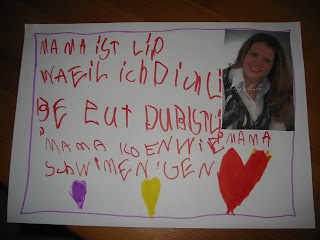 MAMA iST LiP
WAEIL ichDichLi
BE EUT DUBISTLi
P MAMA KOENWiR MAMA
SCHWiMEN GEN